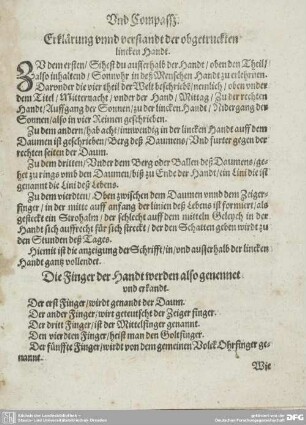 Vnd Compassz.
Erklärung vnnd verstandt der obgetruckten
lincken Handt.
ZV dem ersten/ Sihest du ausserhalb der Handt/ oben den Theil/
also inhaltend/ Sonnvhr in deß Menschen Handt zu erlehrnen.
Darvnder die vier theil der Welt beschriebē/nemlich/ oben vnder
dem Titel/ Mitternacht/ vnder der Hand/ Mittag/ Zu der rechten
Handt/ Auffgang der Sonnen/ zu der lincken Handt/ Nidergang der
Sonnen/ also in vier Reinen geschrieben.
Zu dem andern/ hab acht/ inwendig in der lincken Handt auff dem
Daumen ist geschrieben/ Berg deß Daumens/ Vnd furter gegen der
rechten seiten der Daum.
Zu dem dritten/ Vnder dem Berg oder Ballen deß Daumens/ ge-
het zu rings vmb den Daumen/ biß zu Ende der Handt/ ein Lini die ist
genannt die Lini deß Lebens.
Zu dem vierdten/ Oben zwischen dem Daumen vnnd dem Zeiger-
finger/ in der mitte auff anfang der linien deß Lebens ist formiert/ als
gesteckt ein Strohalm/ der schlecht auff dem mitteln Geleych in der
Handt sich auffrecht für sich streckt/ der den Schatten geben wirdt zu
den Stunden deß Tages.
Hiemit ist die anzeigung der Schrifft/ in/ vnd ausserhalb der lincken
Handt gantz vollendet.
Die Finger der Handt werden also genennet
vnd erkandt.
Der erst Finger/ wirdt genandt der Daum.
Der ander Finger/ wirt geteutscht der Zeiger finger.
Der dritt Finger/ ist der Mittelfinger genannt.
Den vierdten Finger/ heist man den Goltfinger.
Der fünffte Finger/ wirdt von dem gemeinen Volck Ohrfinger ge-
nannt.
Wie